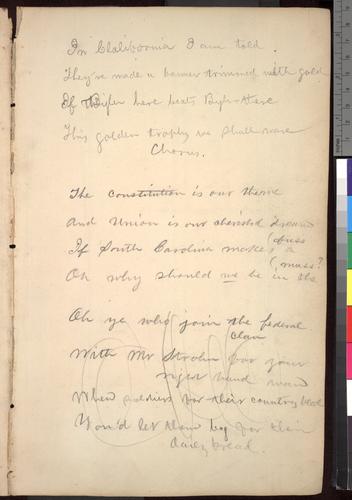 In Claliboonia I am told.
They've made a banner trimmed with gold
If  here beats  there
This golden trophy we shall wave
Chorus.
The constitution is our theme
And Union is our cherished dream
If South Carolina makes a (fuss
(muss?
Oh why should we be in the
Oh ye who join the federal
clan
With Mr Strohm for your
right hand man
When soldiers for their country bled
You'd let them beg for their
daily bread.